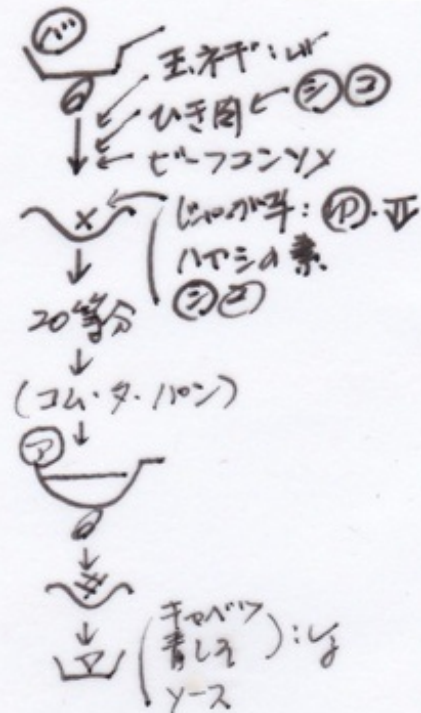 バ
玉ネギ:
ひき肉 ← シ コ
ビーフコンソメ
じゃが芋: ゆ・
ハヤシの素
シ コ
20等分
(コム・タ・パン)
ア
キャベツ
青しそ
ソース